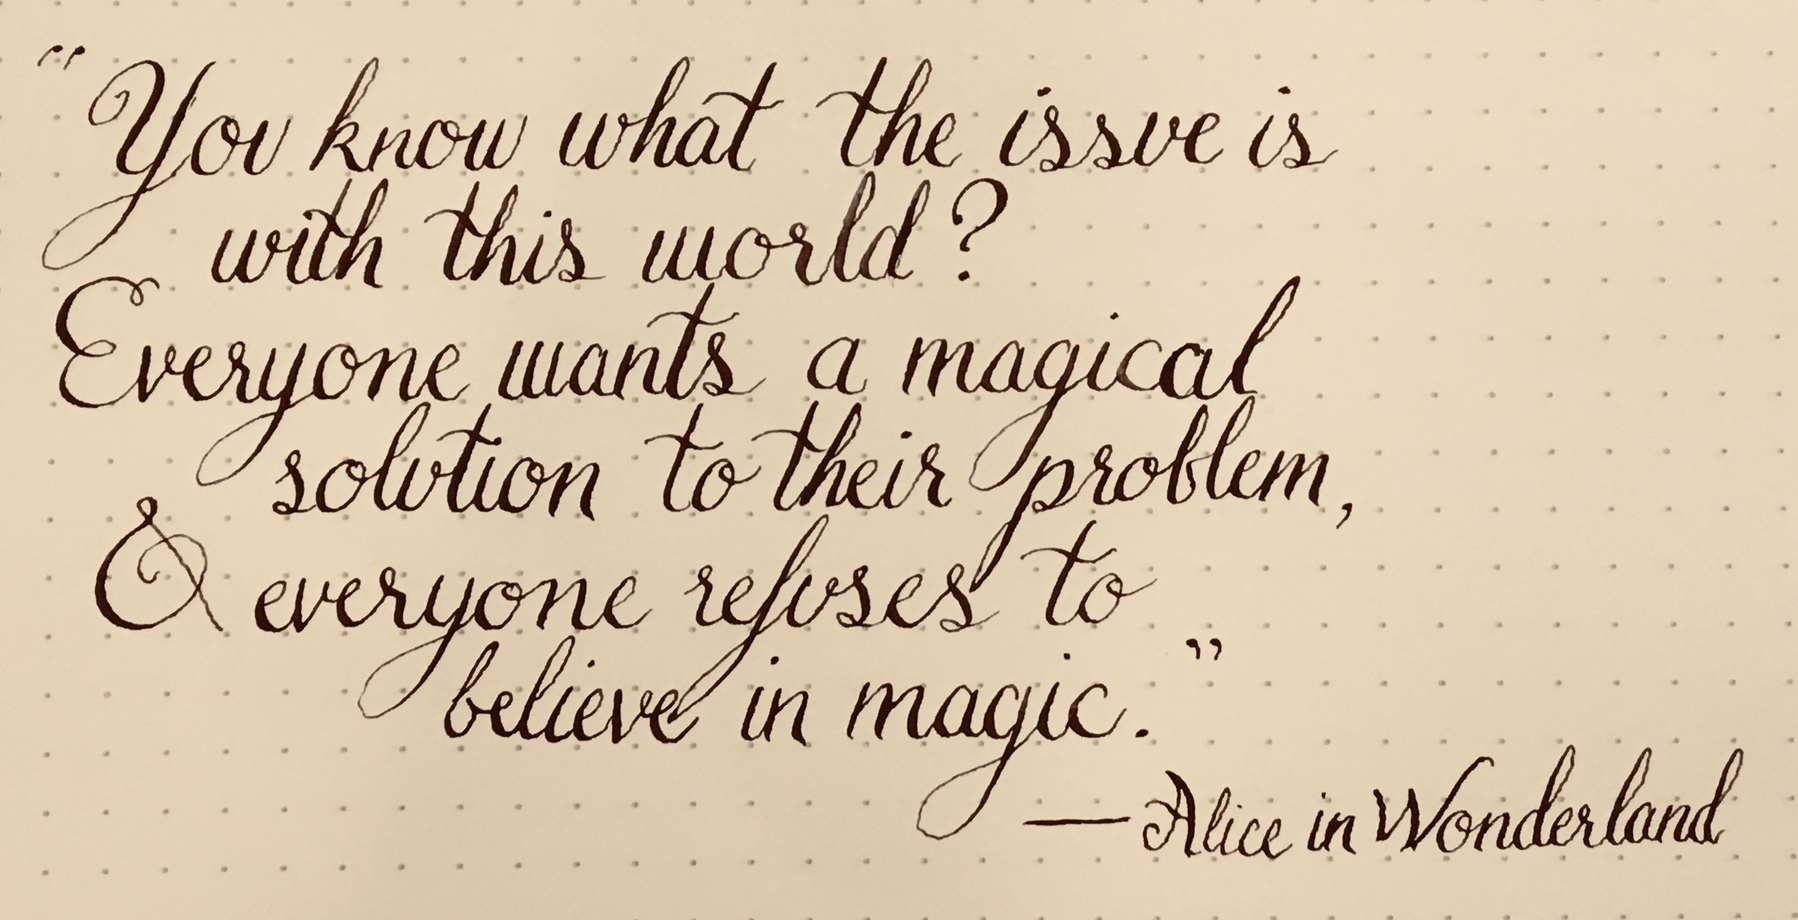 “You know what the issue is
with this world?
Everyone wants a magical
solution to their problem,
& everyone refuses to
believe in magic.”
— Alice in Wonderland